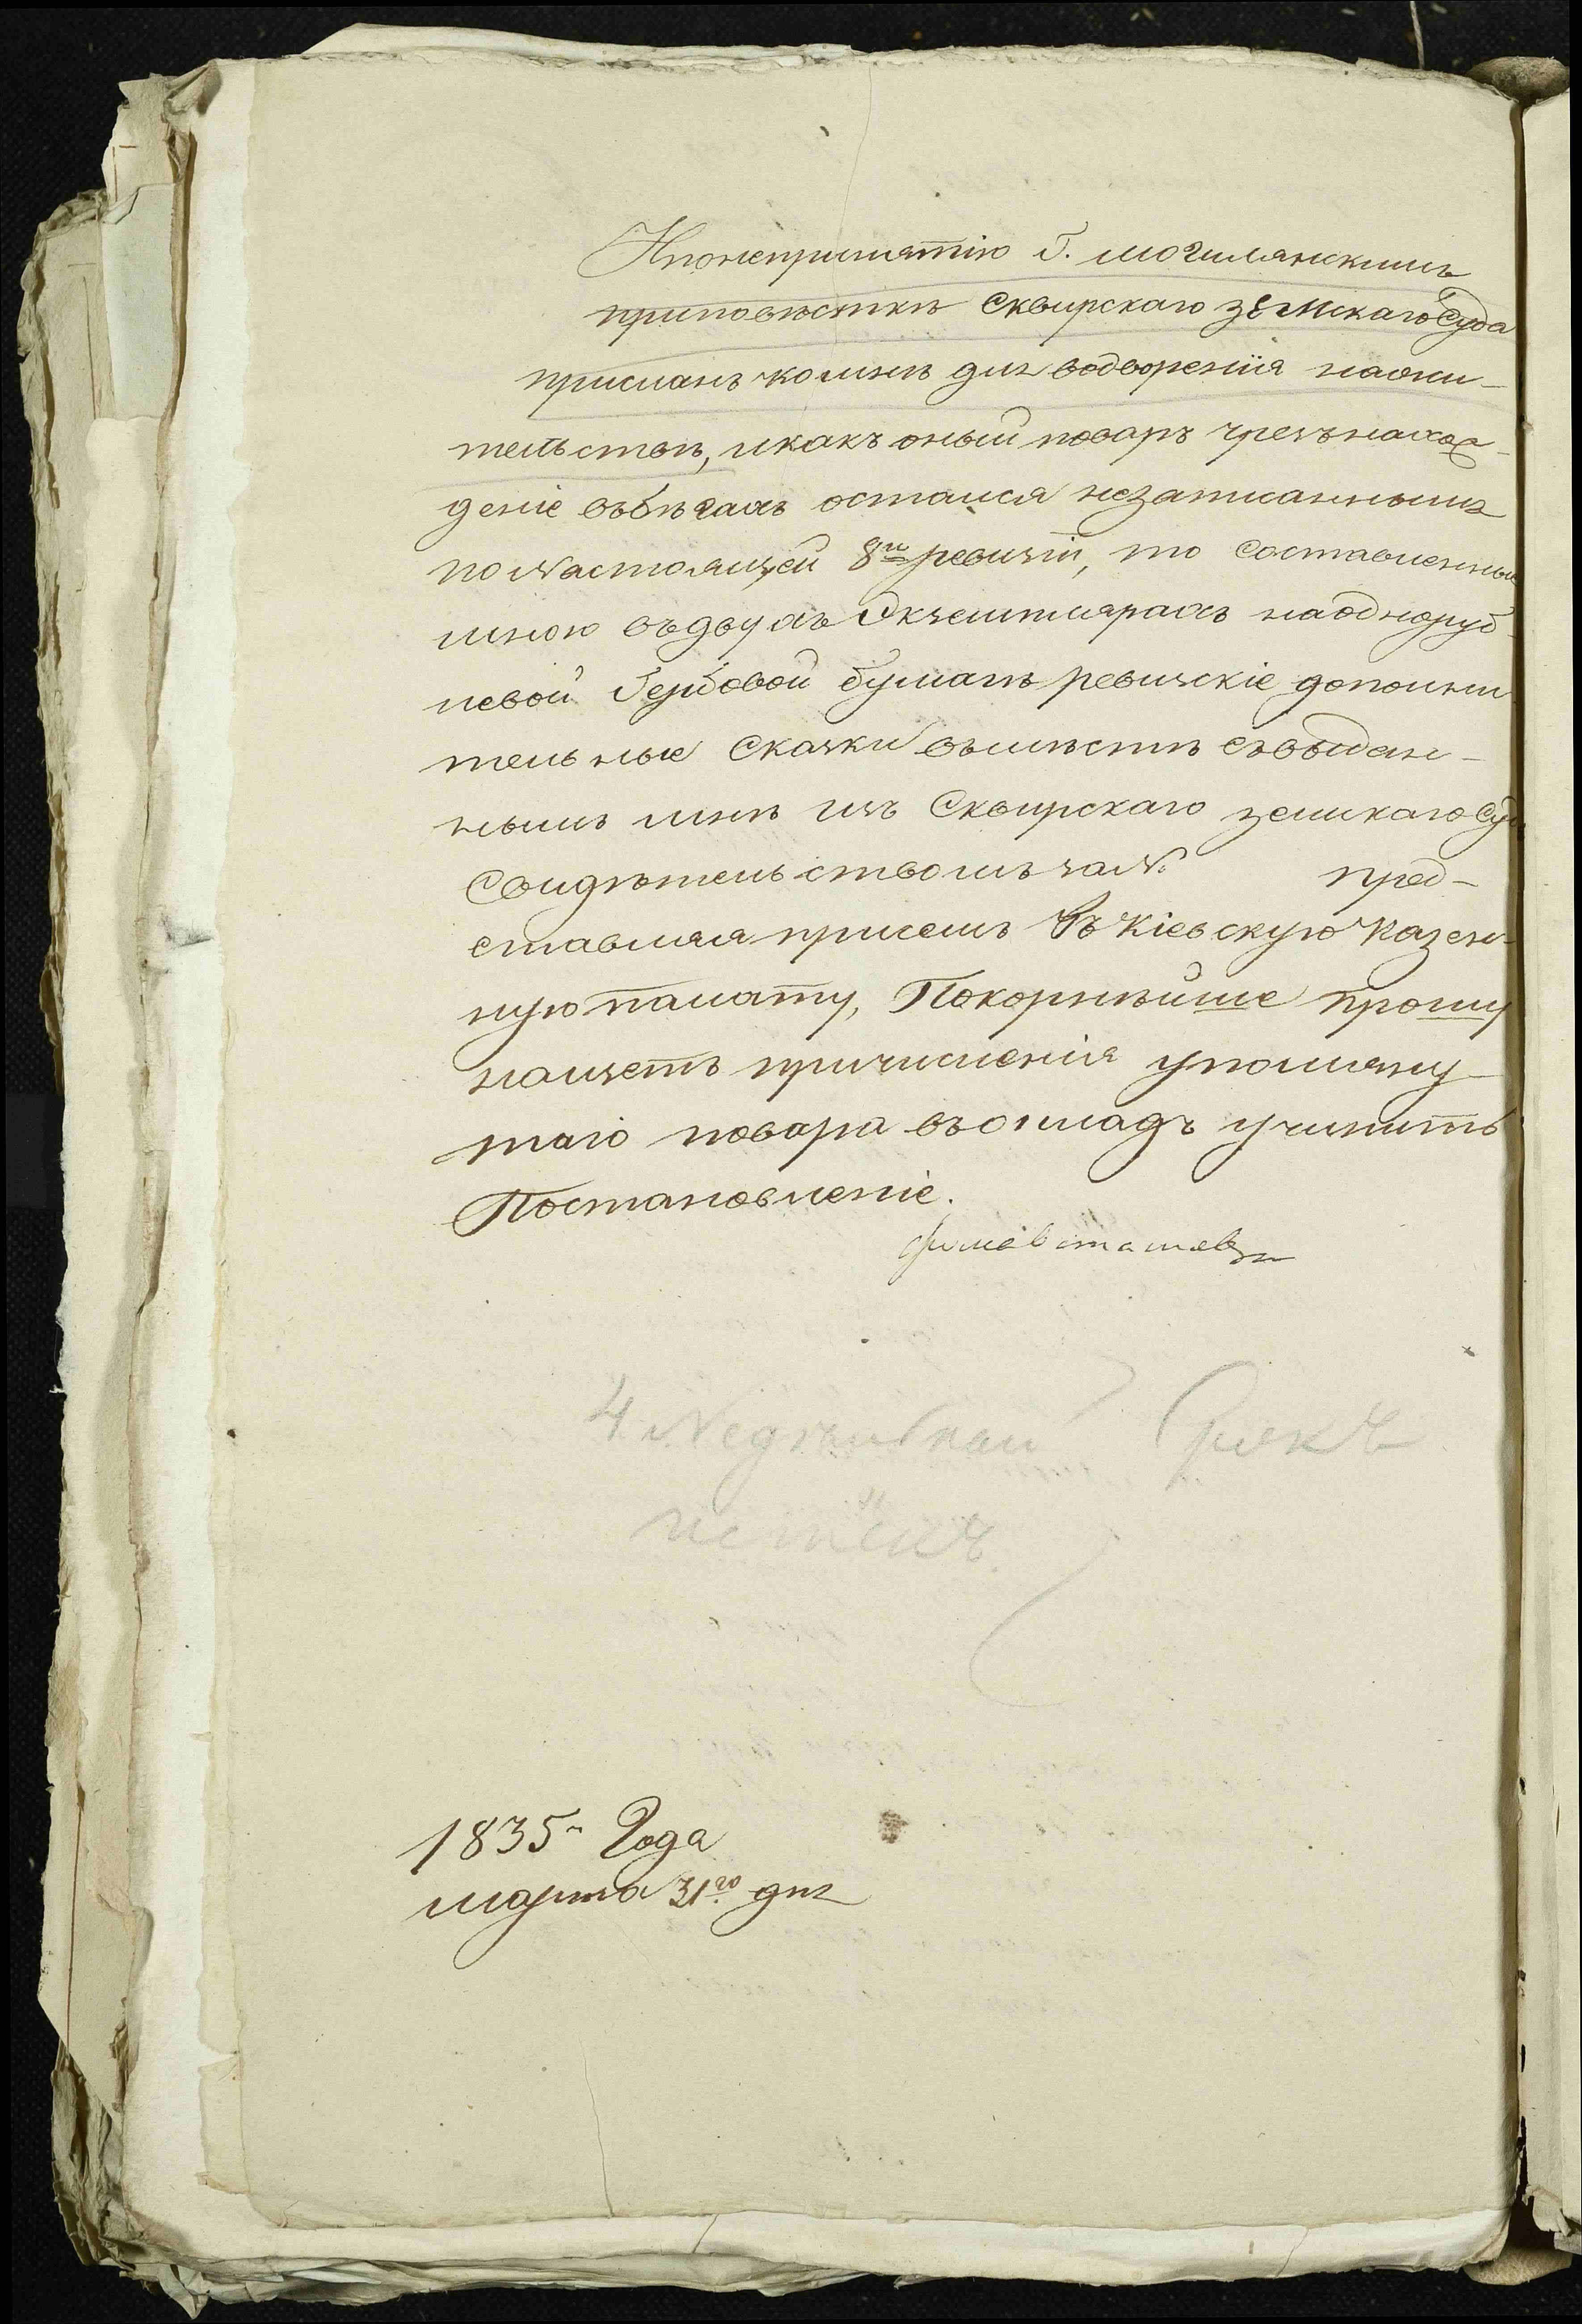 Ипонепринятію Г. могилянскимъ
приповѣсткѣ Сквирскаго земскаго Суда
присланъ комнѣ для водворенія нажи-
тельствѣ, икакъ оный поваръ чрезънахож-
деніе въбѣгахъ остался незаписаннымъ
поНастоящей 8й ревизіи, то Составленные
мною въдвухъ Экземплярахъ наоднруб-
левой Гербовой бумагѣ ревизскіе дополни
тельные Сказки вмѣстѣ съвыдан-
нымъ мнѣ изъ Сквирскаго земскаго Суда
Свидѣтельствомъ за№ пред-
ставляя присемъ Въ Кіевскую Казен-
ную палату, Покорнѣйше прошу
нащетъ причисленія упомяну-
таго повара въокладъ учинить
Постановленіе.
1835 Года
марта 31го дня